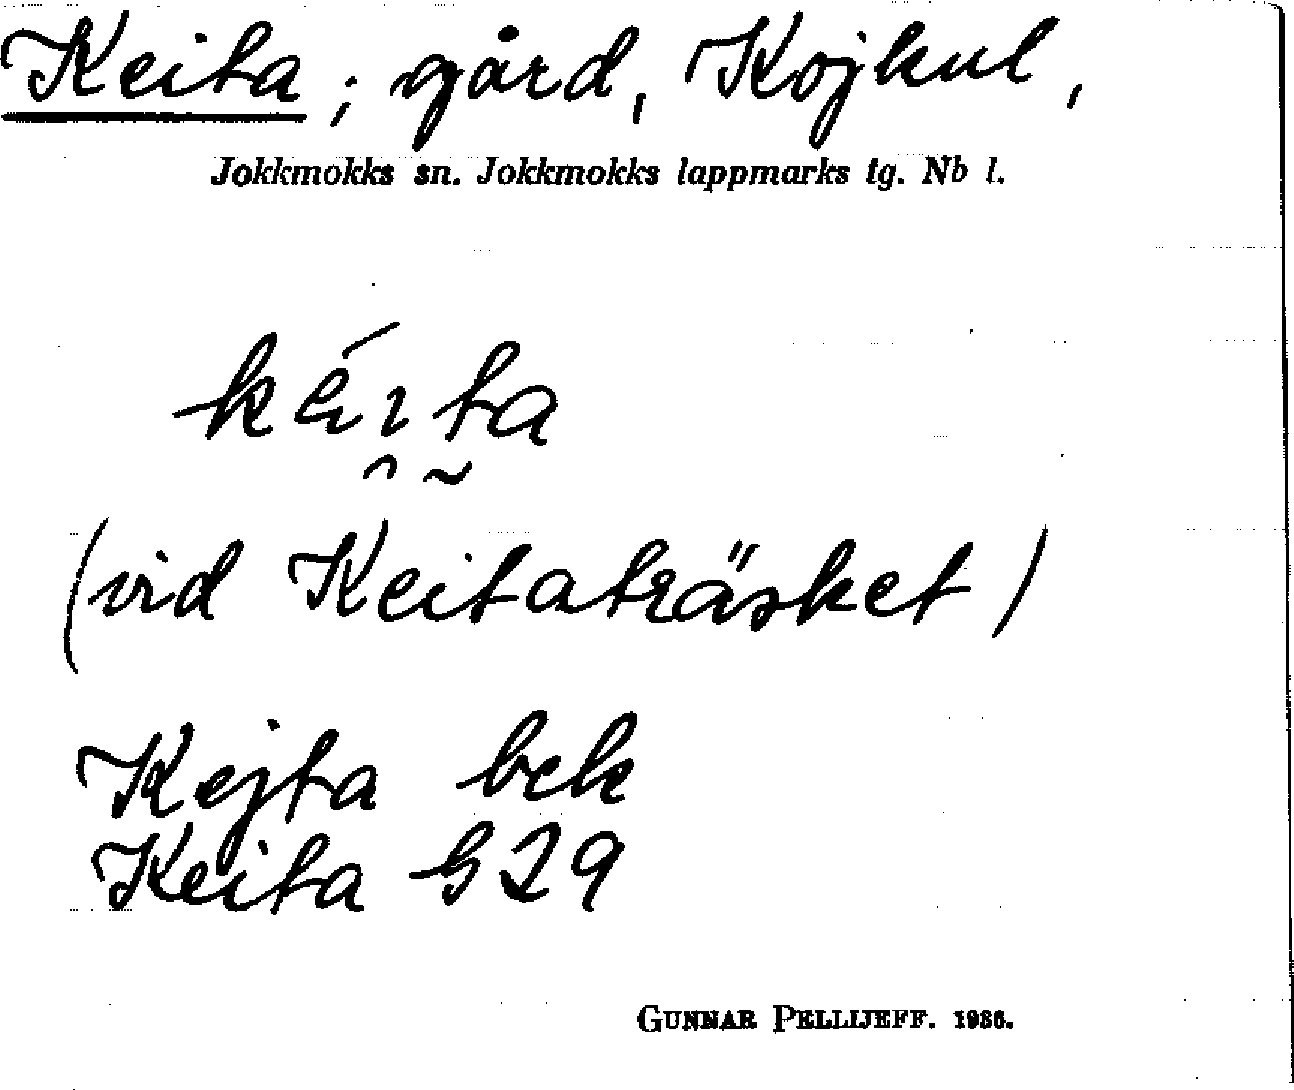 Keita; gård, Kojkul,
Jokkmokks sn. Jokkmokks lappmarks tg. Nb l.
(vid Keitaträsket)
Kejta bek
Keita G29
GUNNAR PELLIJEFF. 1936.